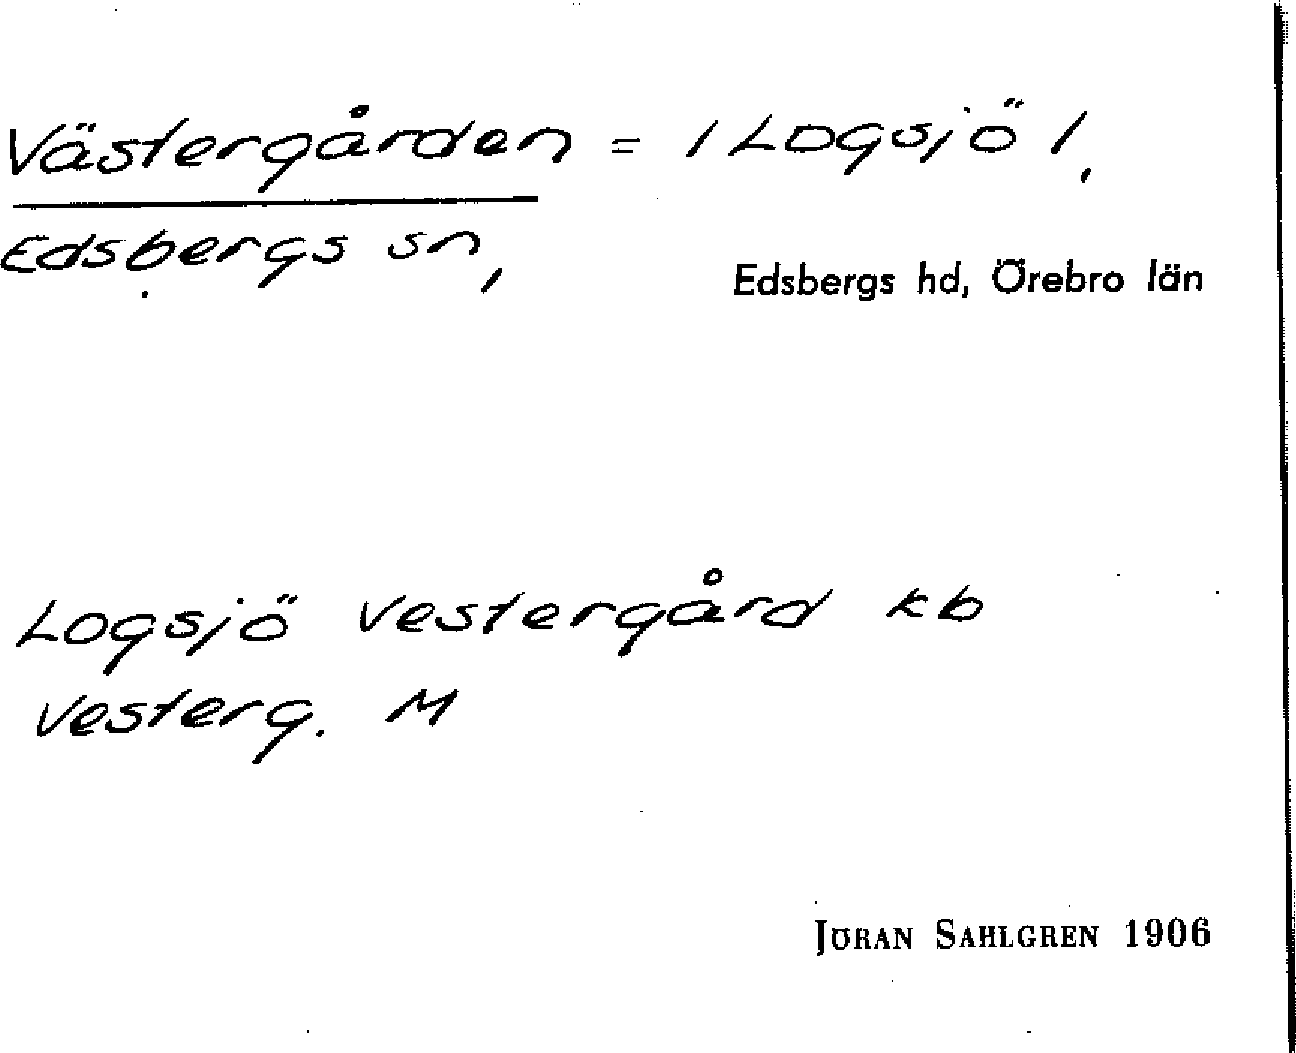 Västergården = / Logsjö /,
Edsbergs sn,
Edsbergs hd, Örebro län
Logsjö Vestergård kb
Vesterg. M
JÖRAN SAHLGREN 1906